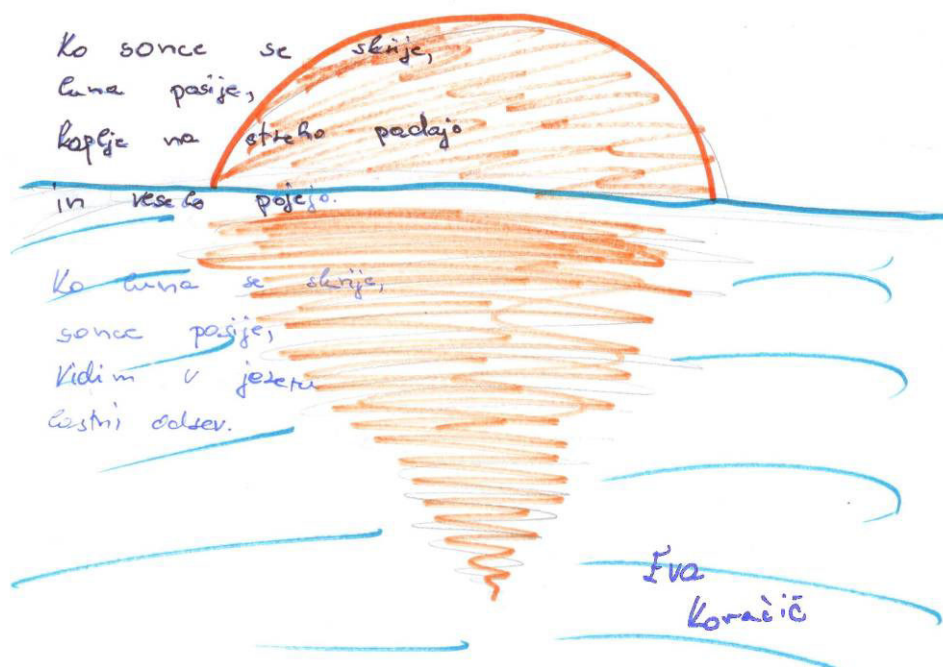 Ko sonce se skrije,
luna posije,
kaplje na streho padajo
in veselo pojejo.
Ko luna se skrije,
sonce posije,
Vidim v jezeru
lastni odsev.
Eva
Kovačič